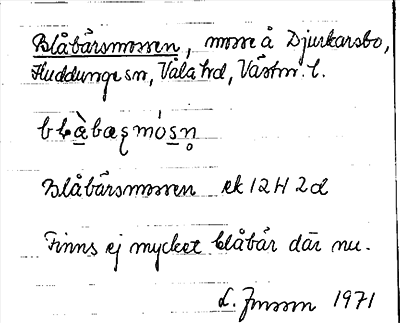 Blåbärsmossen, mosse å Djurkarsbo,
Huddunge sn, Våla hd, Västm. l.
Blåbärsmossen ek 12 H 2d
Finns ej mycket blåbär där nu.
L. Jonsson 1971